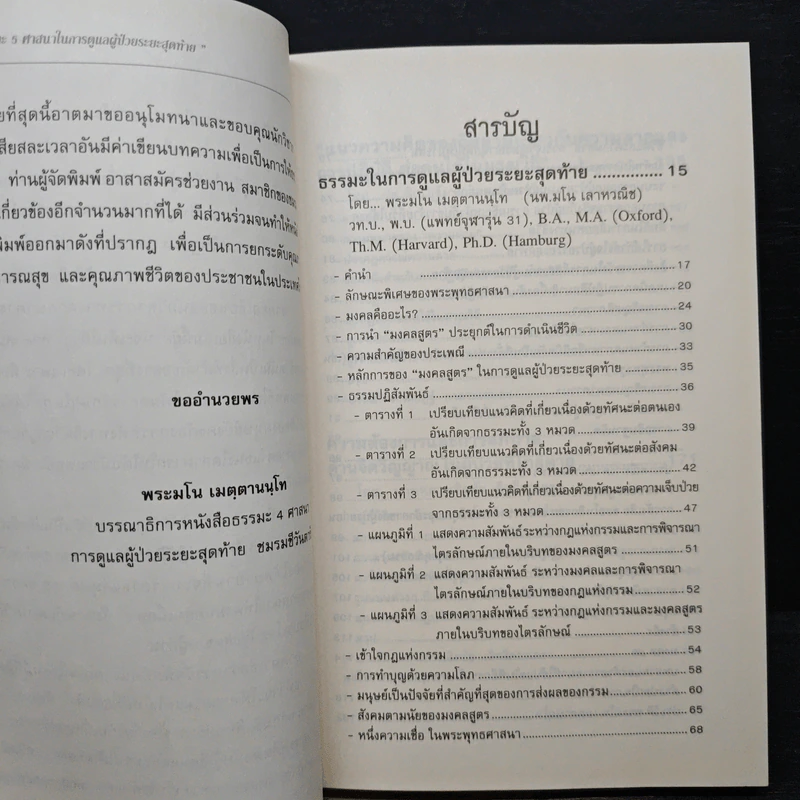 ะ 5 ศาสนาในการดูแลผู้ป่วยระยะสุดท้าย "
ยที่สุดนี้อาตมาขออนุโมทนาและขอบคุณนักวิชา
สียสละเวลาอันมีค่าเขียนบทความเพื่อเป็นการให้
ท่านผู้จัดพิมพ์ อาสาสมัครช่วยงาน สมาชิกของ
เกี่ยวข้องอีกจำนวนมากที่ได้ มีส่วนร่วมจนทำให้
พิมพ์ออกมาดังที่ปรากฏ เพื่อเป็นการยกระดับคุณ
ารณสุข และคุณภาพชีวิตของประชาชนในประเทศ
ขออำนวยพร
พระมโน เมตฺตานนฺโท
บรรณาธิการหนังสือธรรมะ 4 ศาสนา
การดูแลผู้ป่วยระยะสุดท้าย ชมรมชีวันตา
สารบัญ
ธรรมะในการดูแลผู้ป่วยระยะสุดท้าย ............... 15
โดย... พระมโน เมตฺตานนฺโท (นพ.มโน เลาหวณิช)
วท.บ., พ.บ. (แพทย์จุฬารุ่น 31), B.A., M.A. (Oxford),
Th.M. (Harvard), Ph.D. (Hamburg)
- คำนำ ............... 17
- ลักษณะพิเศษของพระพุทธศาสนา ............... 20
- มงคลคืออะไร? ............... 24
- การนำ "มงคลสูตร" ประยุกต์ในการดำเนินชีวิต ............... 30
- ความสำคัญของประเพณี ............... 33
- หลักการของ "มงคลสูตร" ในการดูแลผู้ป่วยระยะสุดท้าย ............... 35
- ธรรมปฏิสัมพันธ์ ............... 36
- ตารางที่ 1 เปรียบเทียบแนวคิดที่เกี่ยวเนื่องด้วยทัศนะต่อตนเอง
อันเกิดจากธรรมะทั้ง 3 หมวด ............... 39
- ตารางที่ 2 เปรียบเทียบแนวคิดที่เกี่ยวเนื่องด้วยทัศนะต่อสังคม
อันเกิดจากธรรมะทั้ง 3 หมวด ............... 42
- ตารางที่ 3 เปรียบเทียบแนวคิดที่เกี่ยวเนื่องด้วยทัศนะต่อความเจ็บป่วย
จากธรรมะทั้ง 3 หมวด ............... 47
- แผนภูมิที่ 1 แสดงความสัมพันธ์ระหว่างกฎแห่งกรรมและการพิจารณา
ไตรลักษณ์ภายในบริบทของมงคลสูตร ............... 51
- แผนภูมิที่ 2 แสดงความสัมพันธ์ ระหว่างมงคลและการพิจารณา
ไตรลักษณ์ภายในบริบทของกฎแห่งกรรม ............... 52
- แผนภูมิที่ 3 แสดงความสัมพันธ์ ระหว่างกฎแห่งกรรมและมงคลสูตร
ภายในบริบทของไตรลักษณ์ ............... 53
- เข้าใจกฎแห่งกรรม ............... 54
- การทำบุญด้วยความโลภ ............... 58
- มนุษย์เป็นปัจจัยที่สำคัญที่สุดของการส่งผลของกรรม ............... 60
- สังคมตามนัยของมงคลสูตร ............... 65
- หนึ่งความเชื่อ ในพระพุทธศาสนา ............... 68